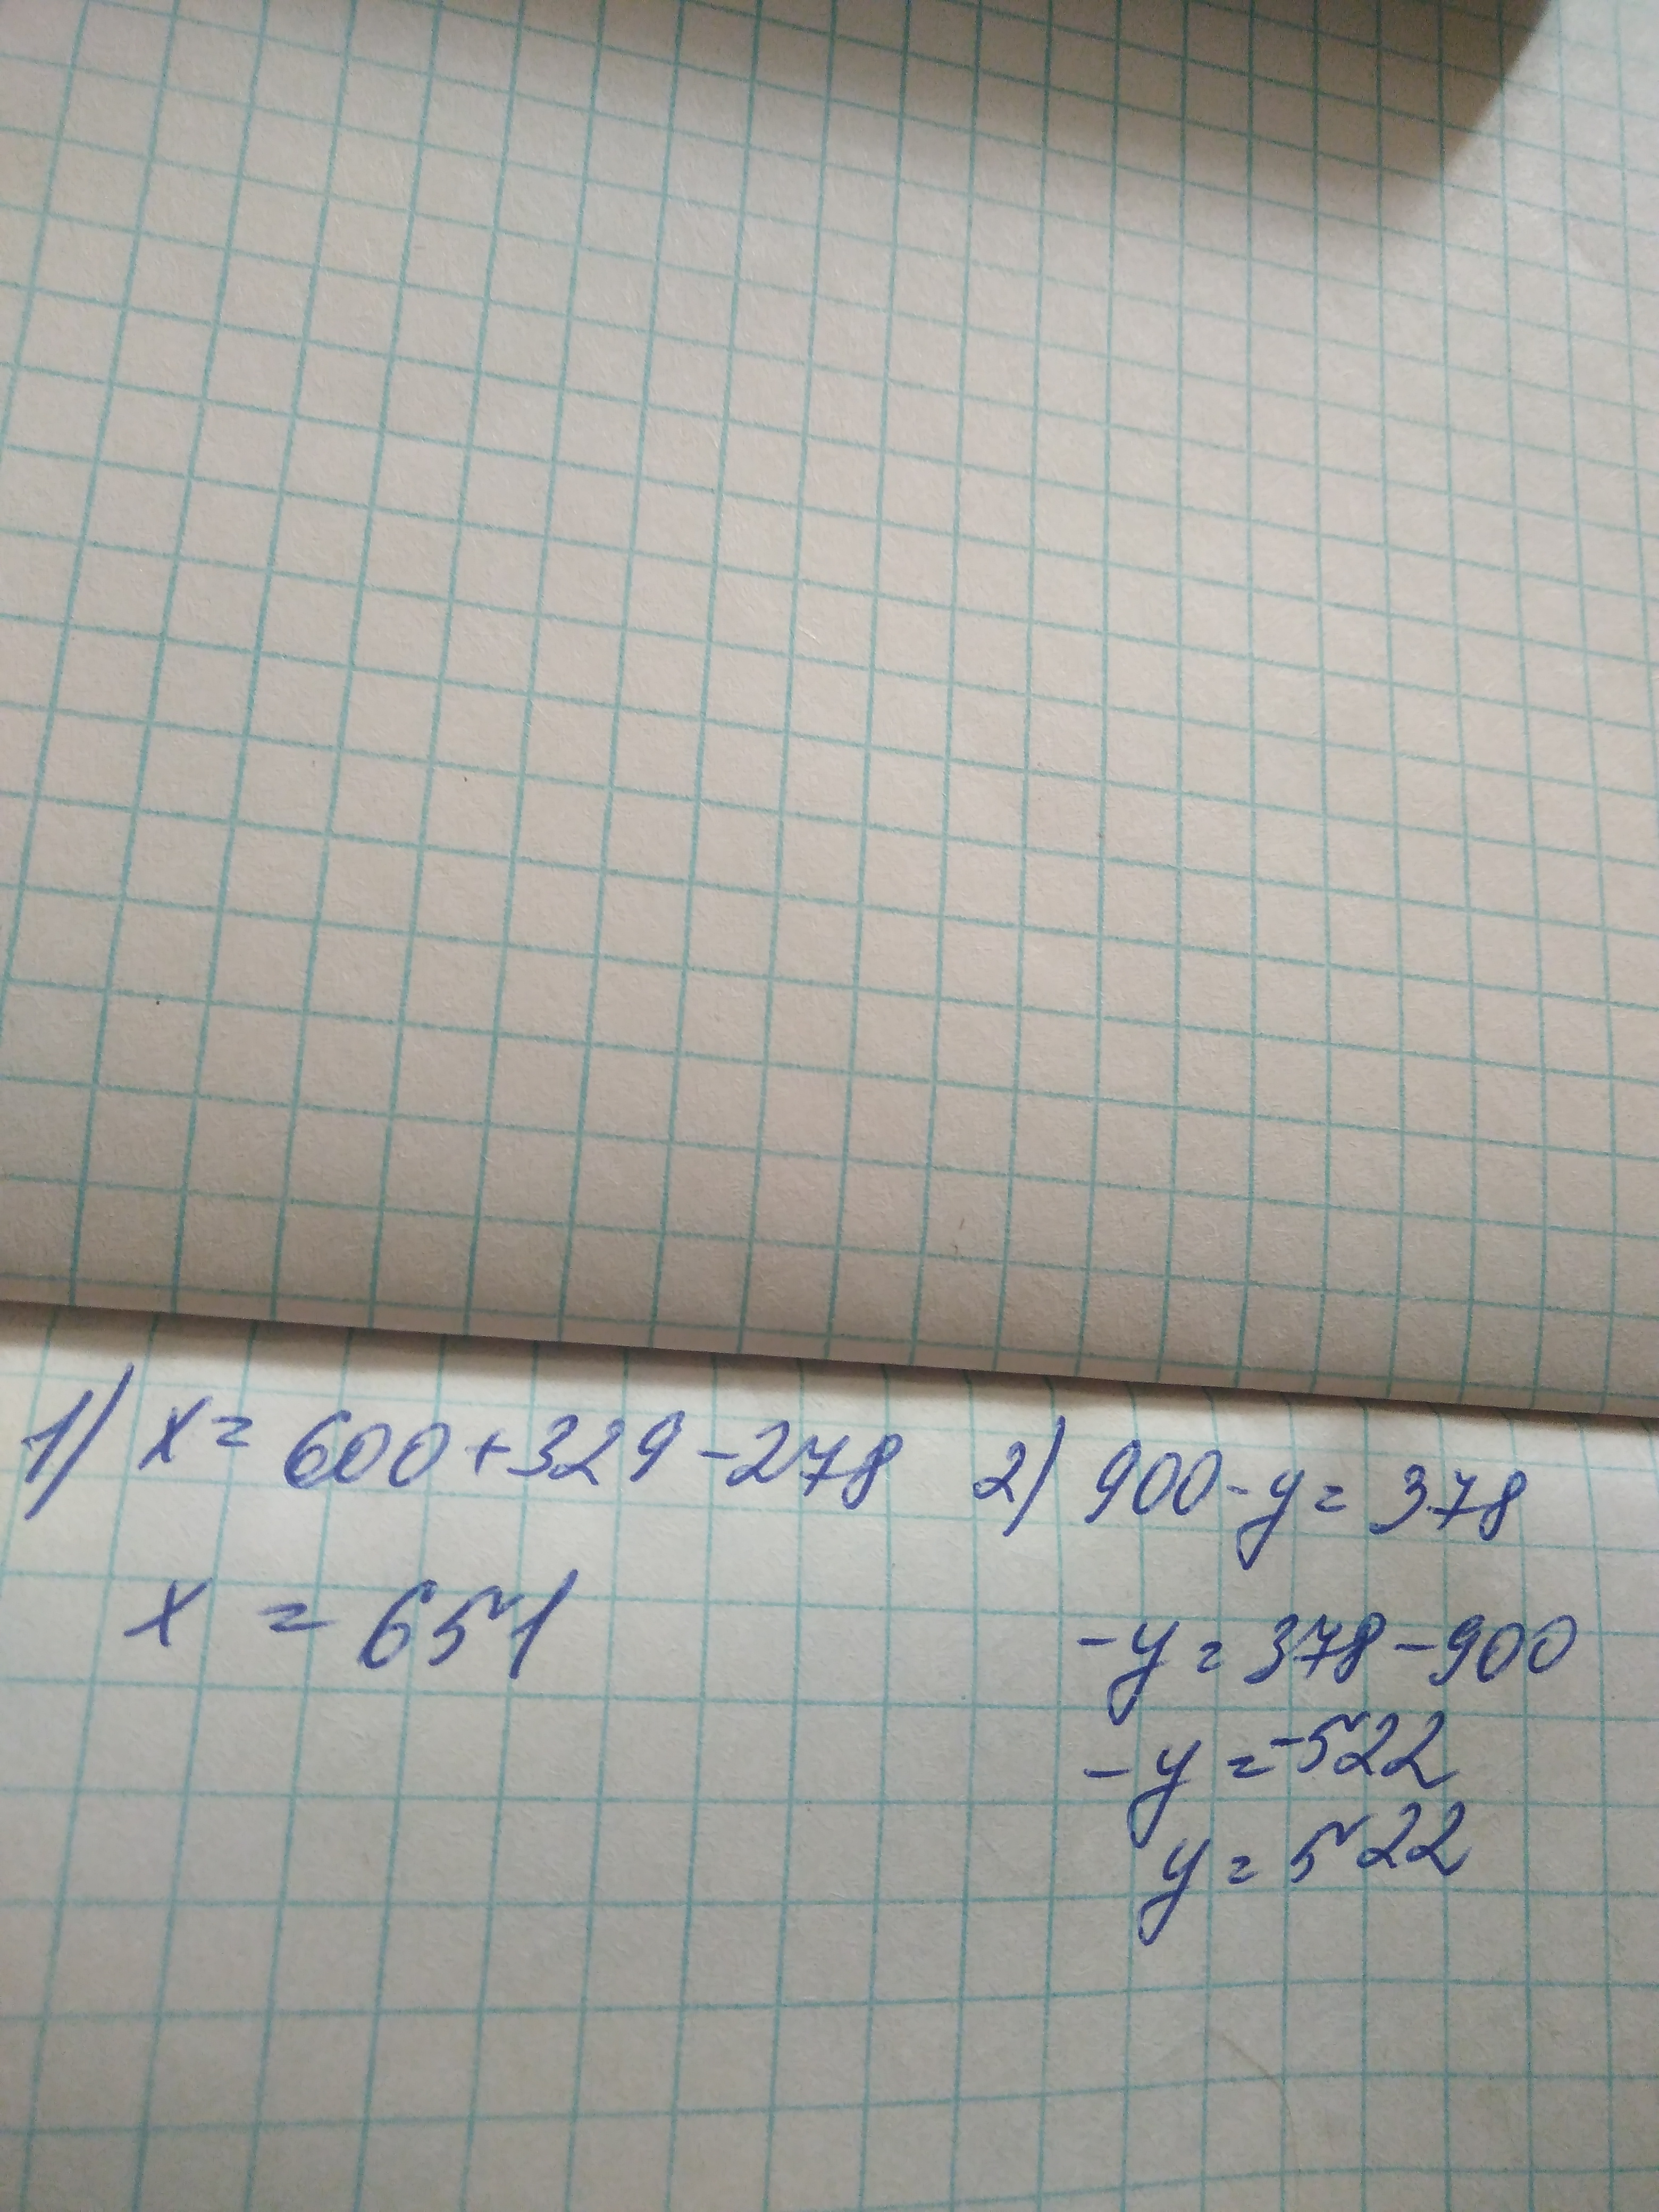 1) x = 600+329-278
x = 651
2) 900-y = 378
-y = 378-900
-y = -522
y = 522